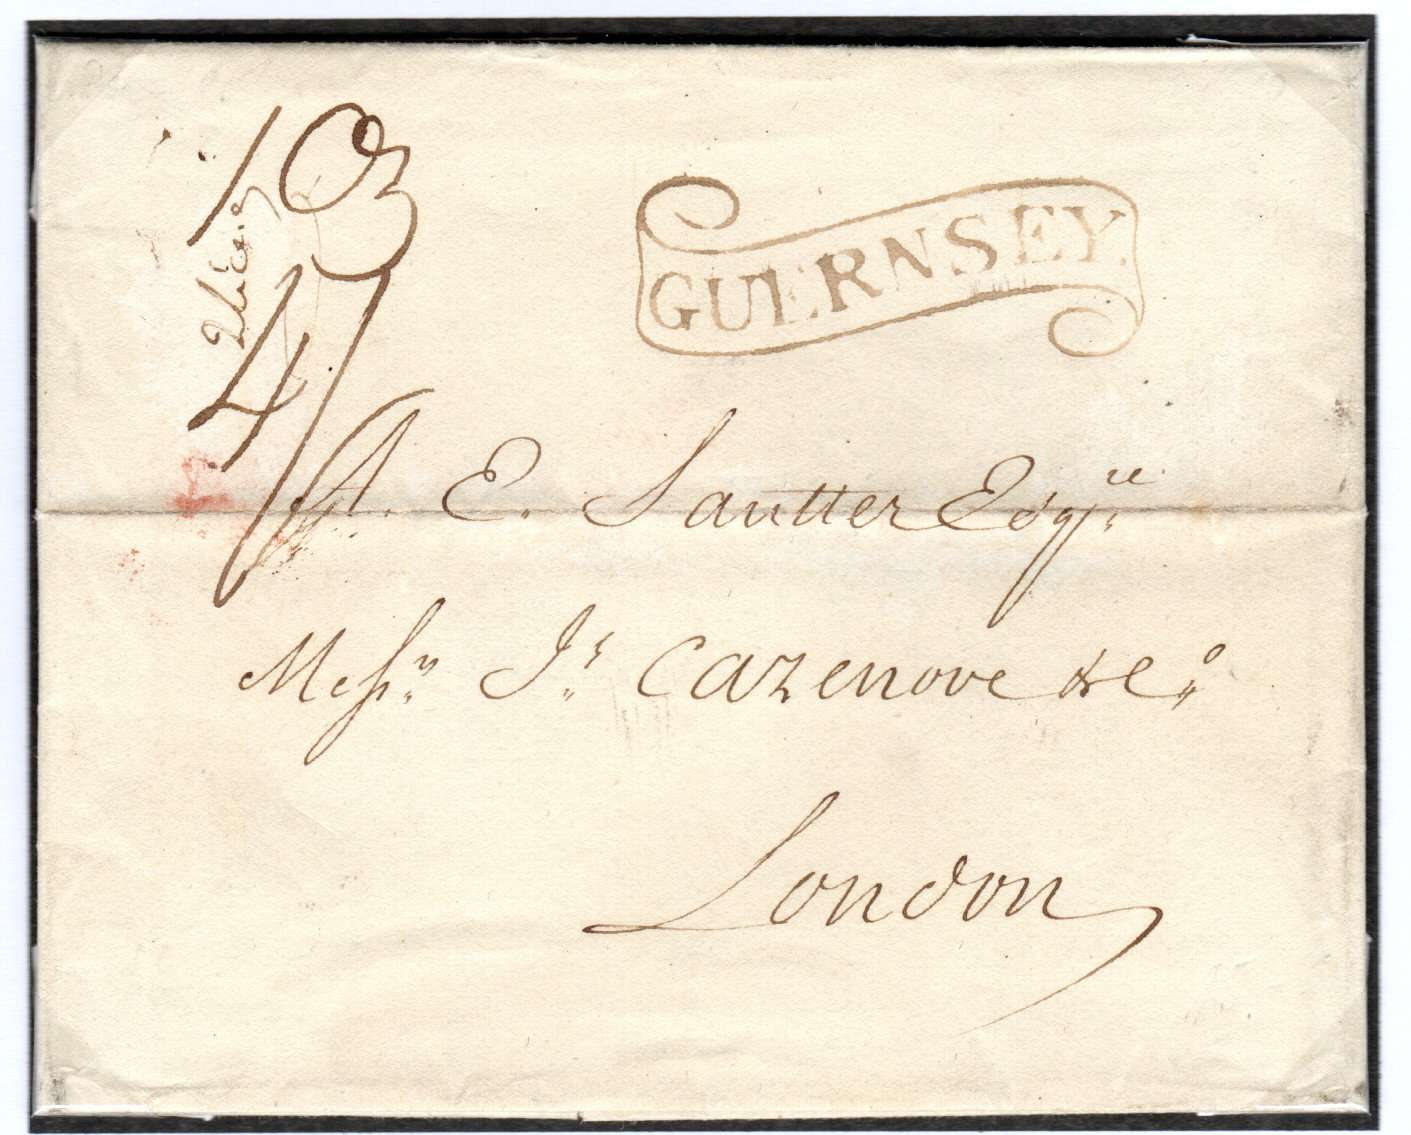 1 Oz
4/
GUERNSEY
A. E. Sautter Esqre
Messrs Js Cazenove & Co
London